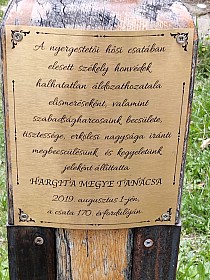 A nyergestetői hősi csatában
elesett székely honvédek
halhatatlan áldozathozatala
elismeréseként, valamint
szabadságharcosaink becsülete,
tisztessége, erkölcsi nagysága iránti
megbecsülésünk és kegyeletünk
jeleként állíttatta
HARGITA MEGYE TANÁCSA
2019. augusztus 1-jén,
a csata 170. évfordulóján.